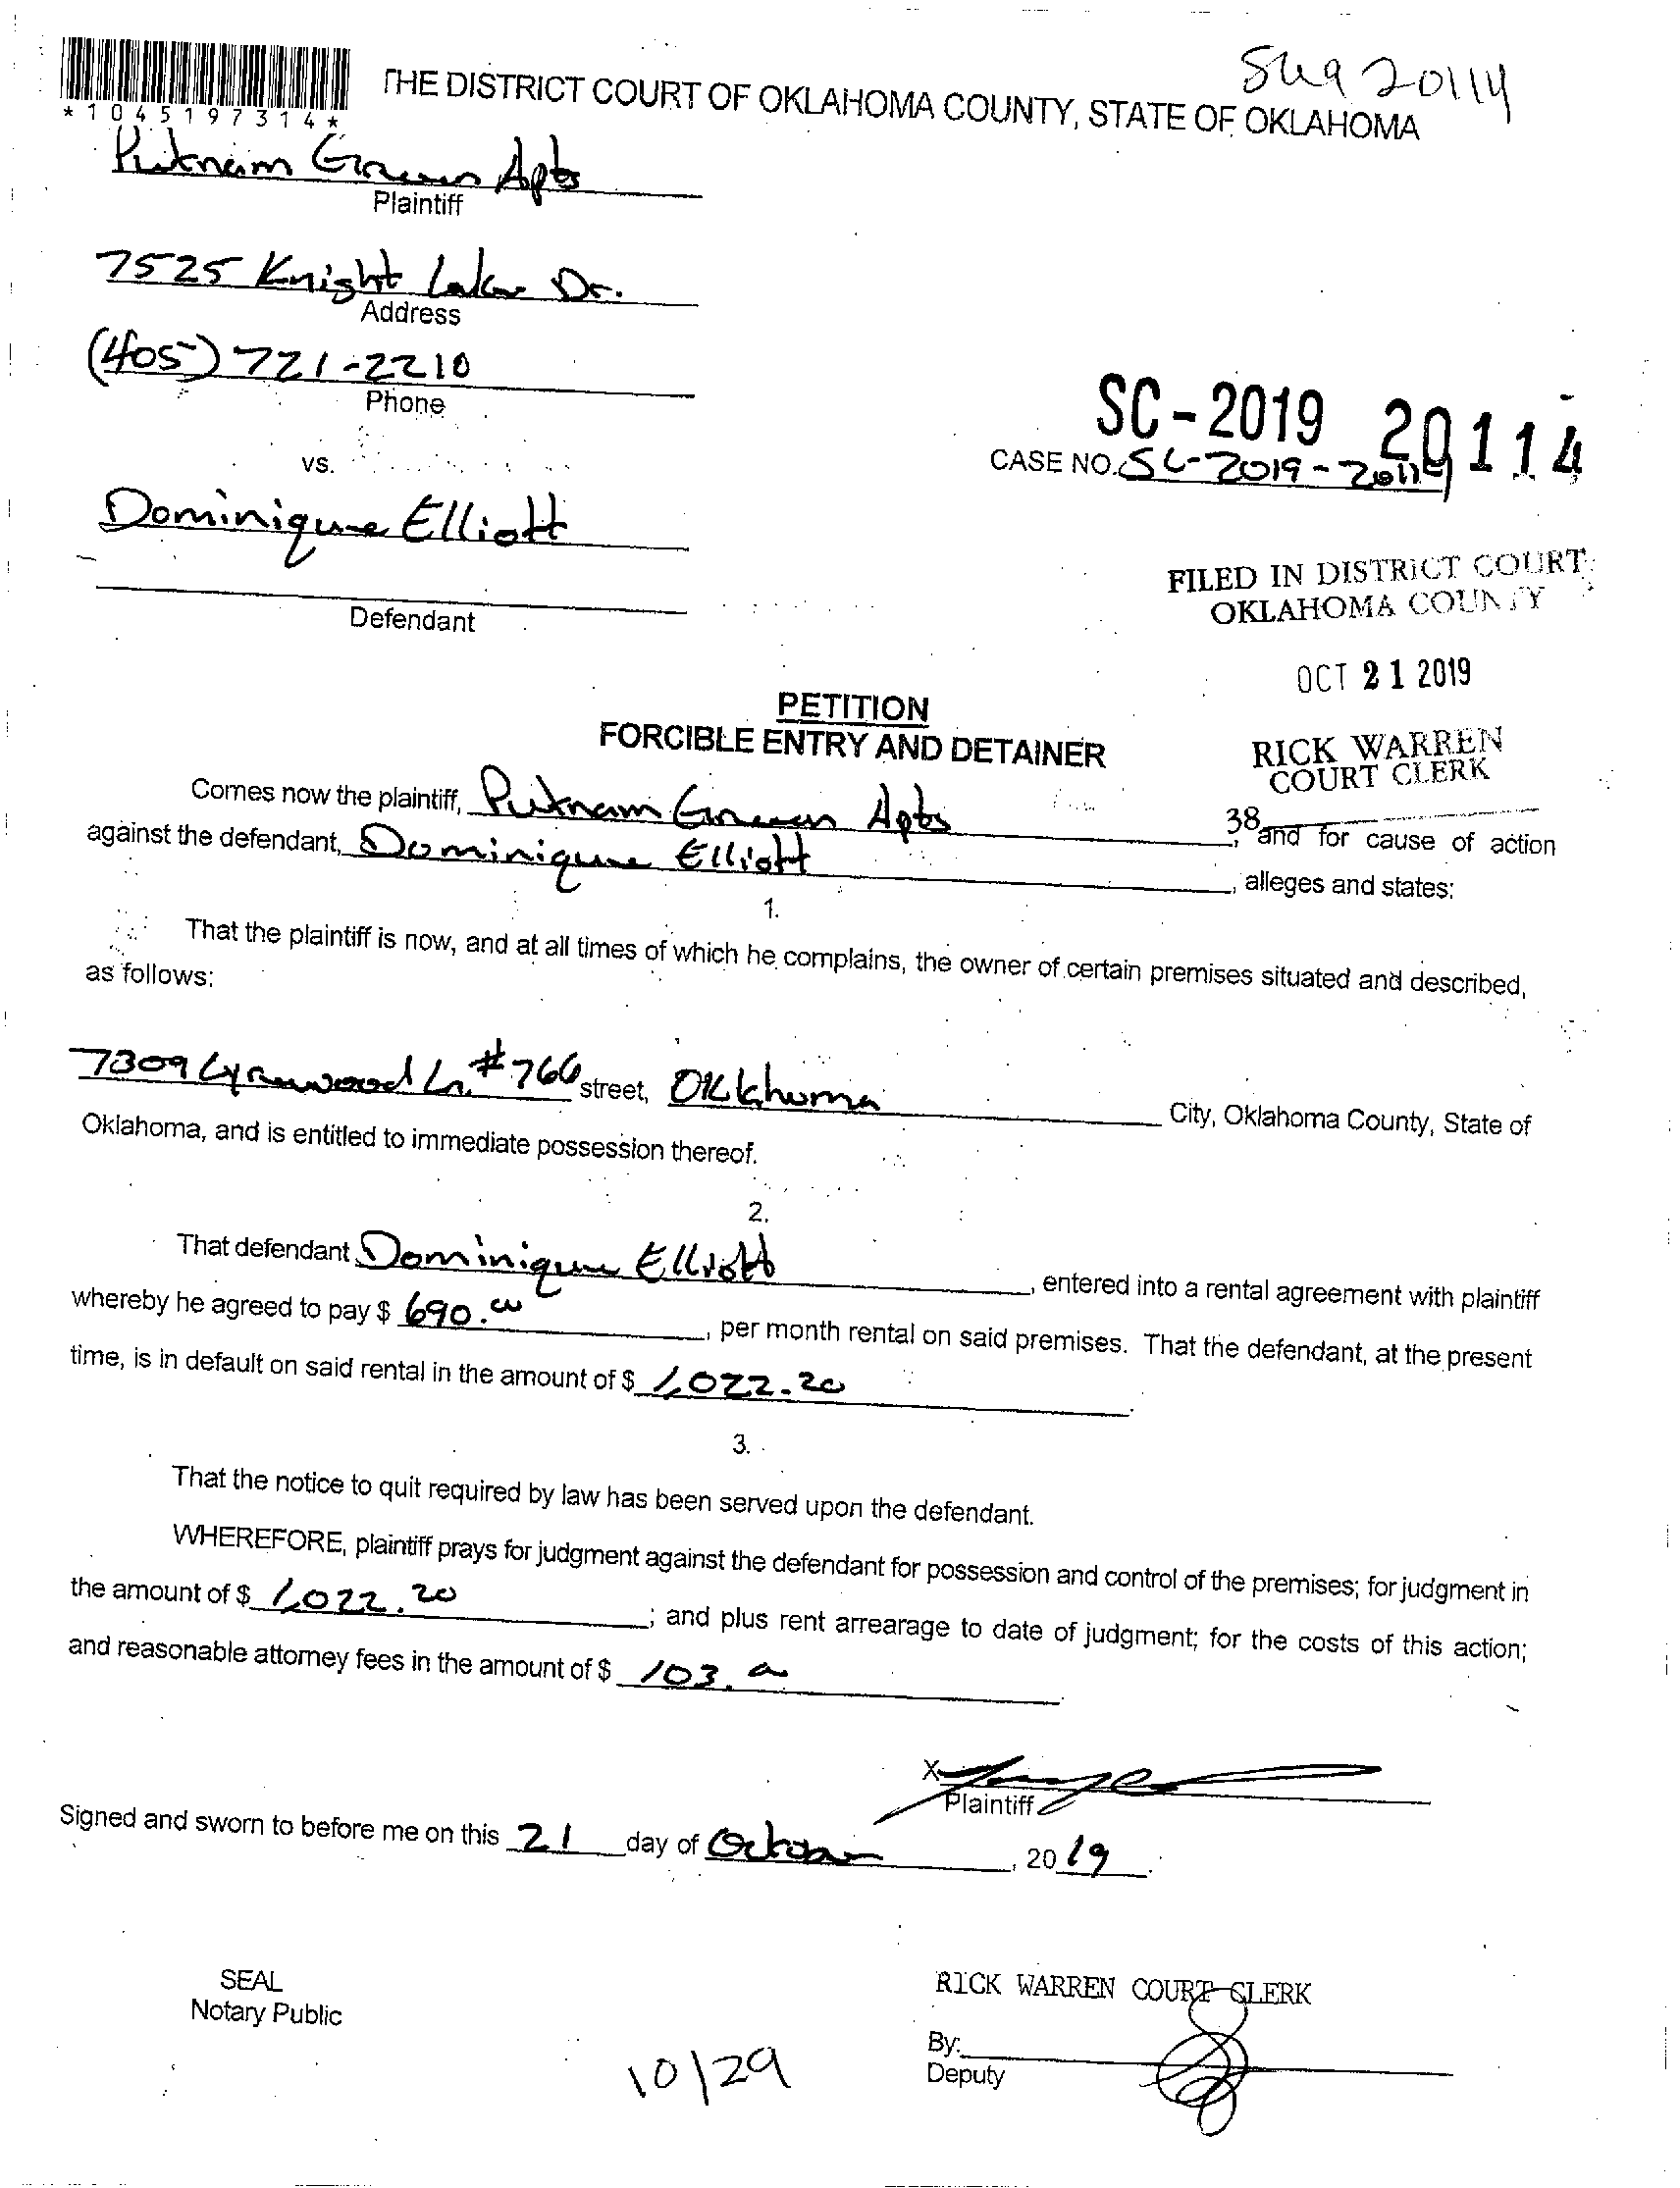 SC19 20114
*1045197314*
THE DISTRICT COURT OF OKLAHOMA COUNTY, STATE OF OKLAHOMA
Putnam Green Apts
Plaintiff
7525 Knight Lake Dr.
Address
(405) 721-2210
Phone
vs.
SC-2019 20114
CASE NO. SC-2019-20114
Dominique Elliott
Defendant
FILED IN DISTRICT COURT
OKLAHOMA COUNTY
OCT 21 2019
RICK WARREN
COURT CLERK
38
PETITION
FORCIBLE ENTRY AND DETAINER
Comes now the plaintiff, Putnam Green Apts, and for cause of action
against the defendant, Dominique Elliott, alleges and states:
1.
That the plaintiff is now, and at all times of which he complains, the owner of certain premises situated and described,
as follows:
7309 Lyrewood Ln. #766 street, Oklahoma City, Oklahoma County, State of
Oklahoma, and is entitled to immediate possession thereof.
2.
That defendant Dominique Elliott, entered into a rental agreement with plaintiff
whereby he agreed to pay $ 690.00, per month rental on said premises. That the defendant, at the present
time, is in default on said rental in the amount of $ 1,022.20.
3.
That the notice to quit required by law has been served upon the defendant.
WHEREFORE, plaintiff prays for judgment against the defendant for possession and control of the premises; for judgment in
the amount of $ 1,022.20; and plus rent arrearage to date of judgment; for the costs of this action;
and reasonable attorney fees in the amount of $ 103.00
X
Plaintiff
Signed and sworn to before me on this 21 day of October, 2019.
SEAL
Notary Public
RICK WARREN COURT CLERK
By:
Deputy
10/29